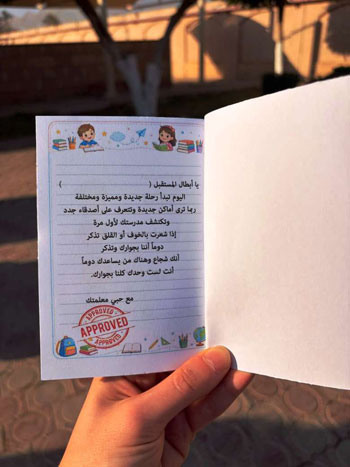 يا أبطال المستقبل (                    )
اليوم تبدأ رحلة جديدة ومميزة ومختلفة
ربما ترى أماكن جديدة وتتعرف على أصدقاء جدد
وتكتشف مدرستك لأول مرة
إذا شعرت بالخوف أو القلق تذكر
دوماً أننا بجوارك وتذكر
أنك شجاع وهناك من يساعدك دوماً
أنت لست وحدك كلنا بجوارك.
مع حبي معلمتك
APPROVED
APPROVED
APPROVED